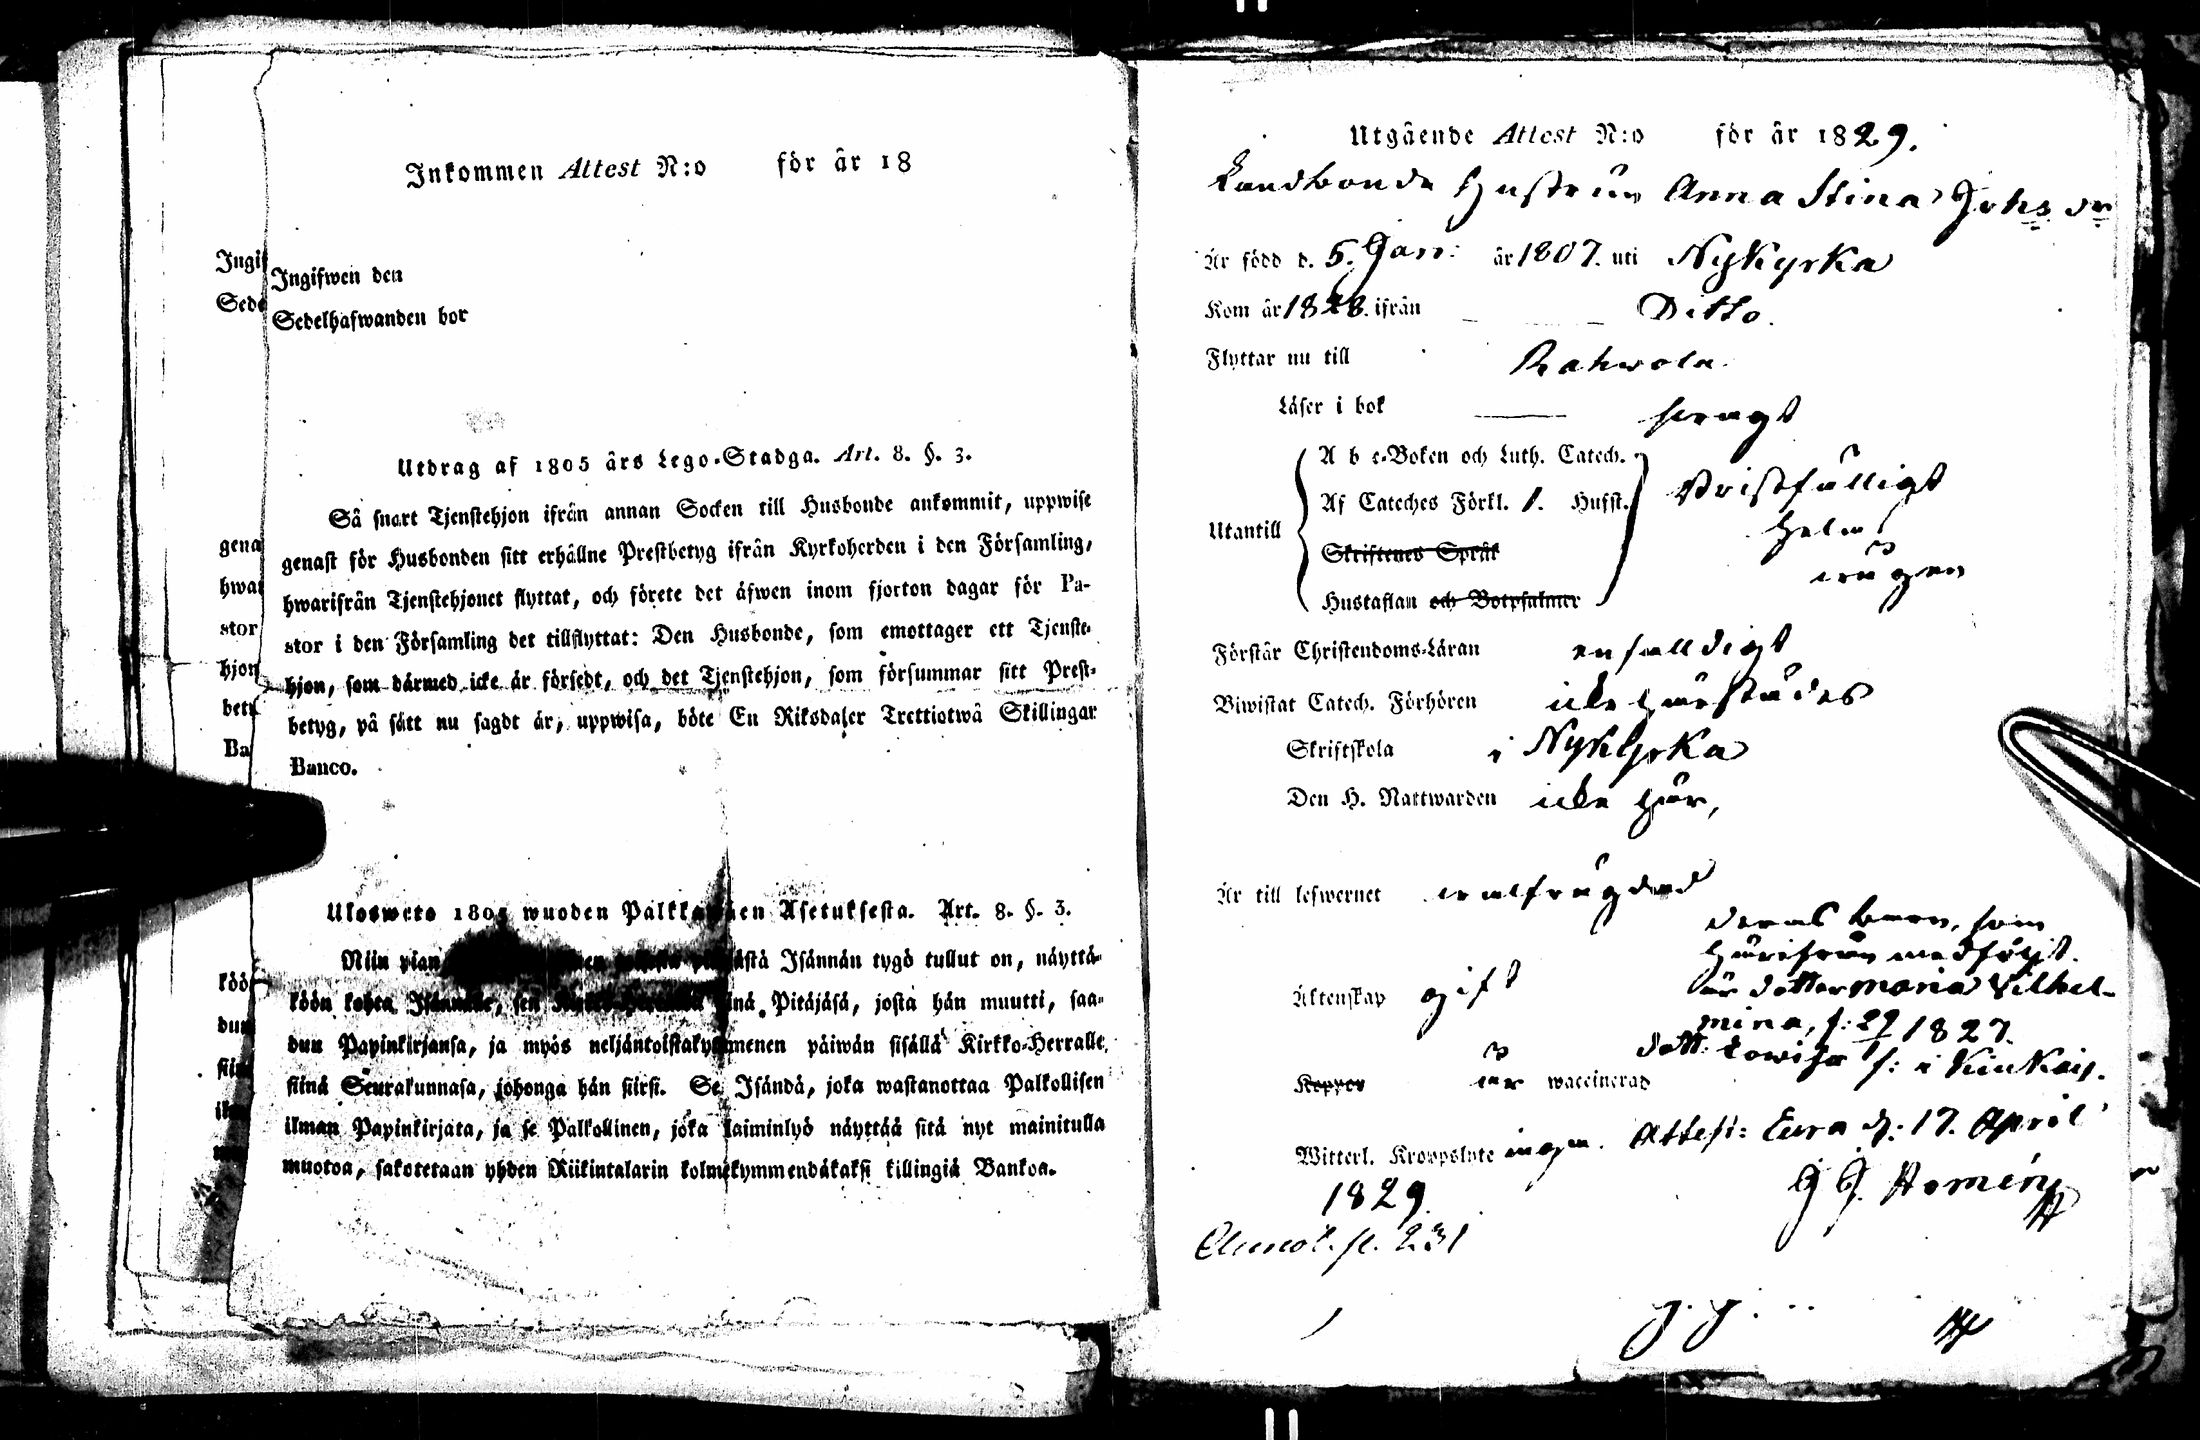 Inkommen Attest N:o för år 18
Ingifwen den
Sedelhafwanden bor
Utdrag af 1805 års Lego-Stadga. Art. 8. §. 3.
Så snart Tjenstehjon ifrån annan Socken till Husbonde ankommit, uppwise
genast för Husbonden sitt erhållne Prestbetyg ifrån Kyrkoherden i den Församling,
hwarifrån Tjenstehjonet flyttat, och förete det äfwen inom fjorton dagar för Pa-
stor i den Församling det tillflyttat: Den Husbonde, som emottager ett Tjenste-
hjon, som därmed icke är försedt, och det Tjenstehjon, som försummar sitt Prest-
betyg, på sätt nu sagdt är, uppwisa, böte En Riksdaler Trettiotwå Skillingar
Banco.
Ulosweto 1805 wuoden Asetuksesta. Art. 8. §. 3.
Niin pian Isännän tygö tullut on, näyttä-
köön kohta sen Pitäjäsä, josta hän muutti, saa-
dun Papinkirjansa, ja myös neljäntoistakymmenen päiwän sisällä Kirkko-Herralle
siinä Seurakunnasa, johonga hän siirsi. Se Isändä, joka wastanottaa Palkollisen
ilman Papinkirjata, ja se Palkollinen, joka laiminlyö näyttää sitä nyt mainitulla
muotoa, sakotetaan yhden Riikintalarin kolmekymmendäkaksi killingiä Bankoa.
Ingif
Sede
gena
hwar
stor
hjon
bety
Ba
köö
dun
siin
Utgående Attest N:o för år 1829.
Landbonde Hustrun Anna Stina Johs dr
Är född d. 5. Jan: år 1807. uti Nykyrka
Kom år 1828. ifrån Ditto.
Flyttar nu till Rahwola.
Läser i bok swagt
A b c-Boken och Luth. Catech.
Af Cateches Förkl. 1. Hufst.
Utantill
Skriftenes Språk
Hustaflan och Botpsalmer
Bristfälligt
Förstår Christendoms-Läran enfalldigt
Biwistat Catech. Förhören icke härstädes
Skriftskola i Nykyrka
Den H. Nattwarden icke här,
Är till lefwernet wälfrägdad
deras barn, som
härifrån medföljt.
är dotter Maria Vilhel-
mina, f: 1827.
Äktenskap gift
dott: Lowisa f: i Kiukais.
Koppor är waccinerad
Witterl. Kroppslyte ingen. Attest: Eura d: 17. April
1829.
Annot. fl. 231